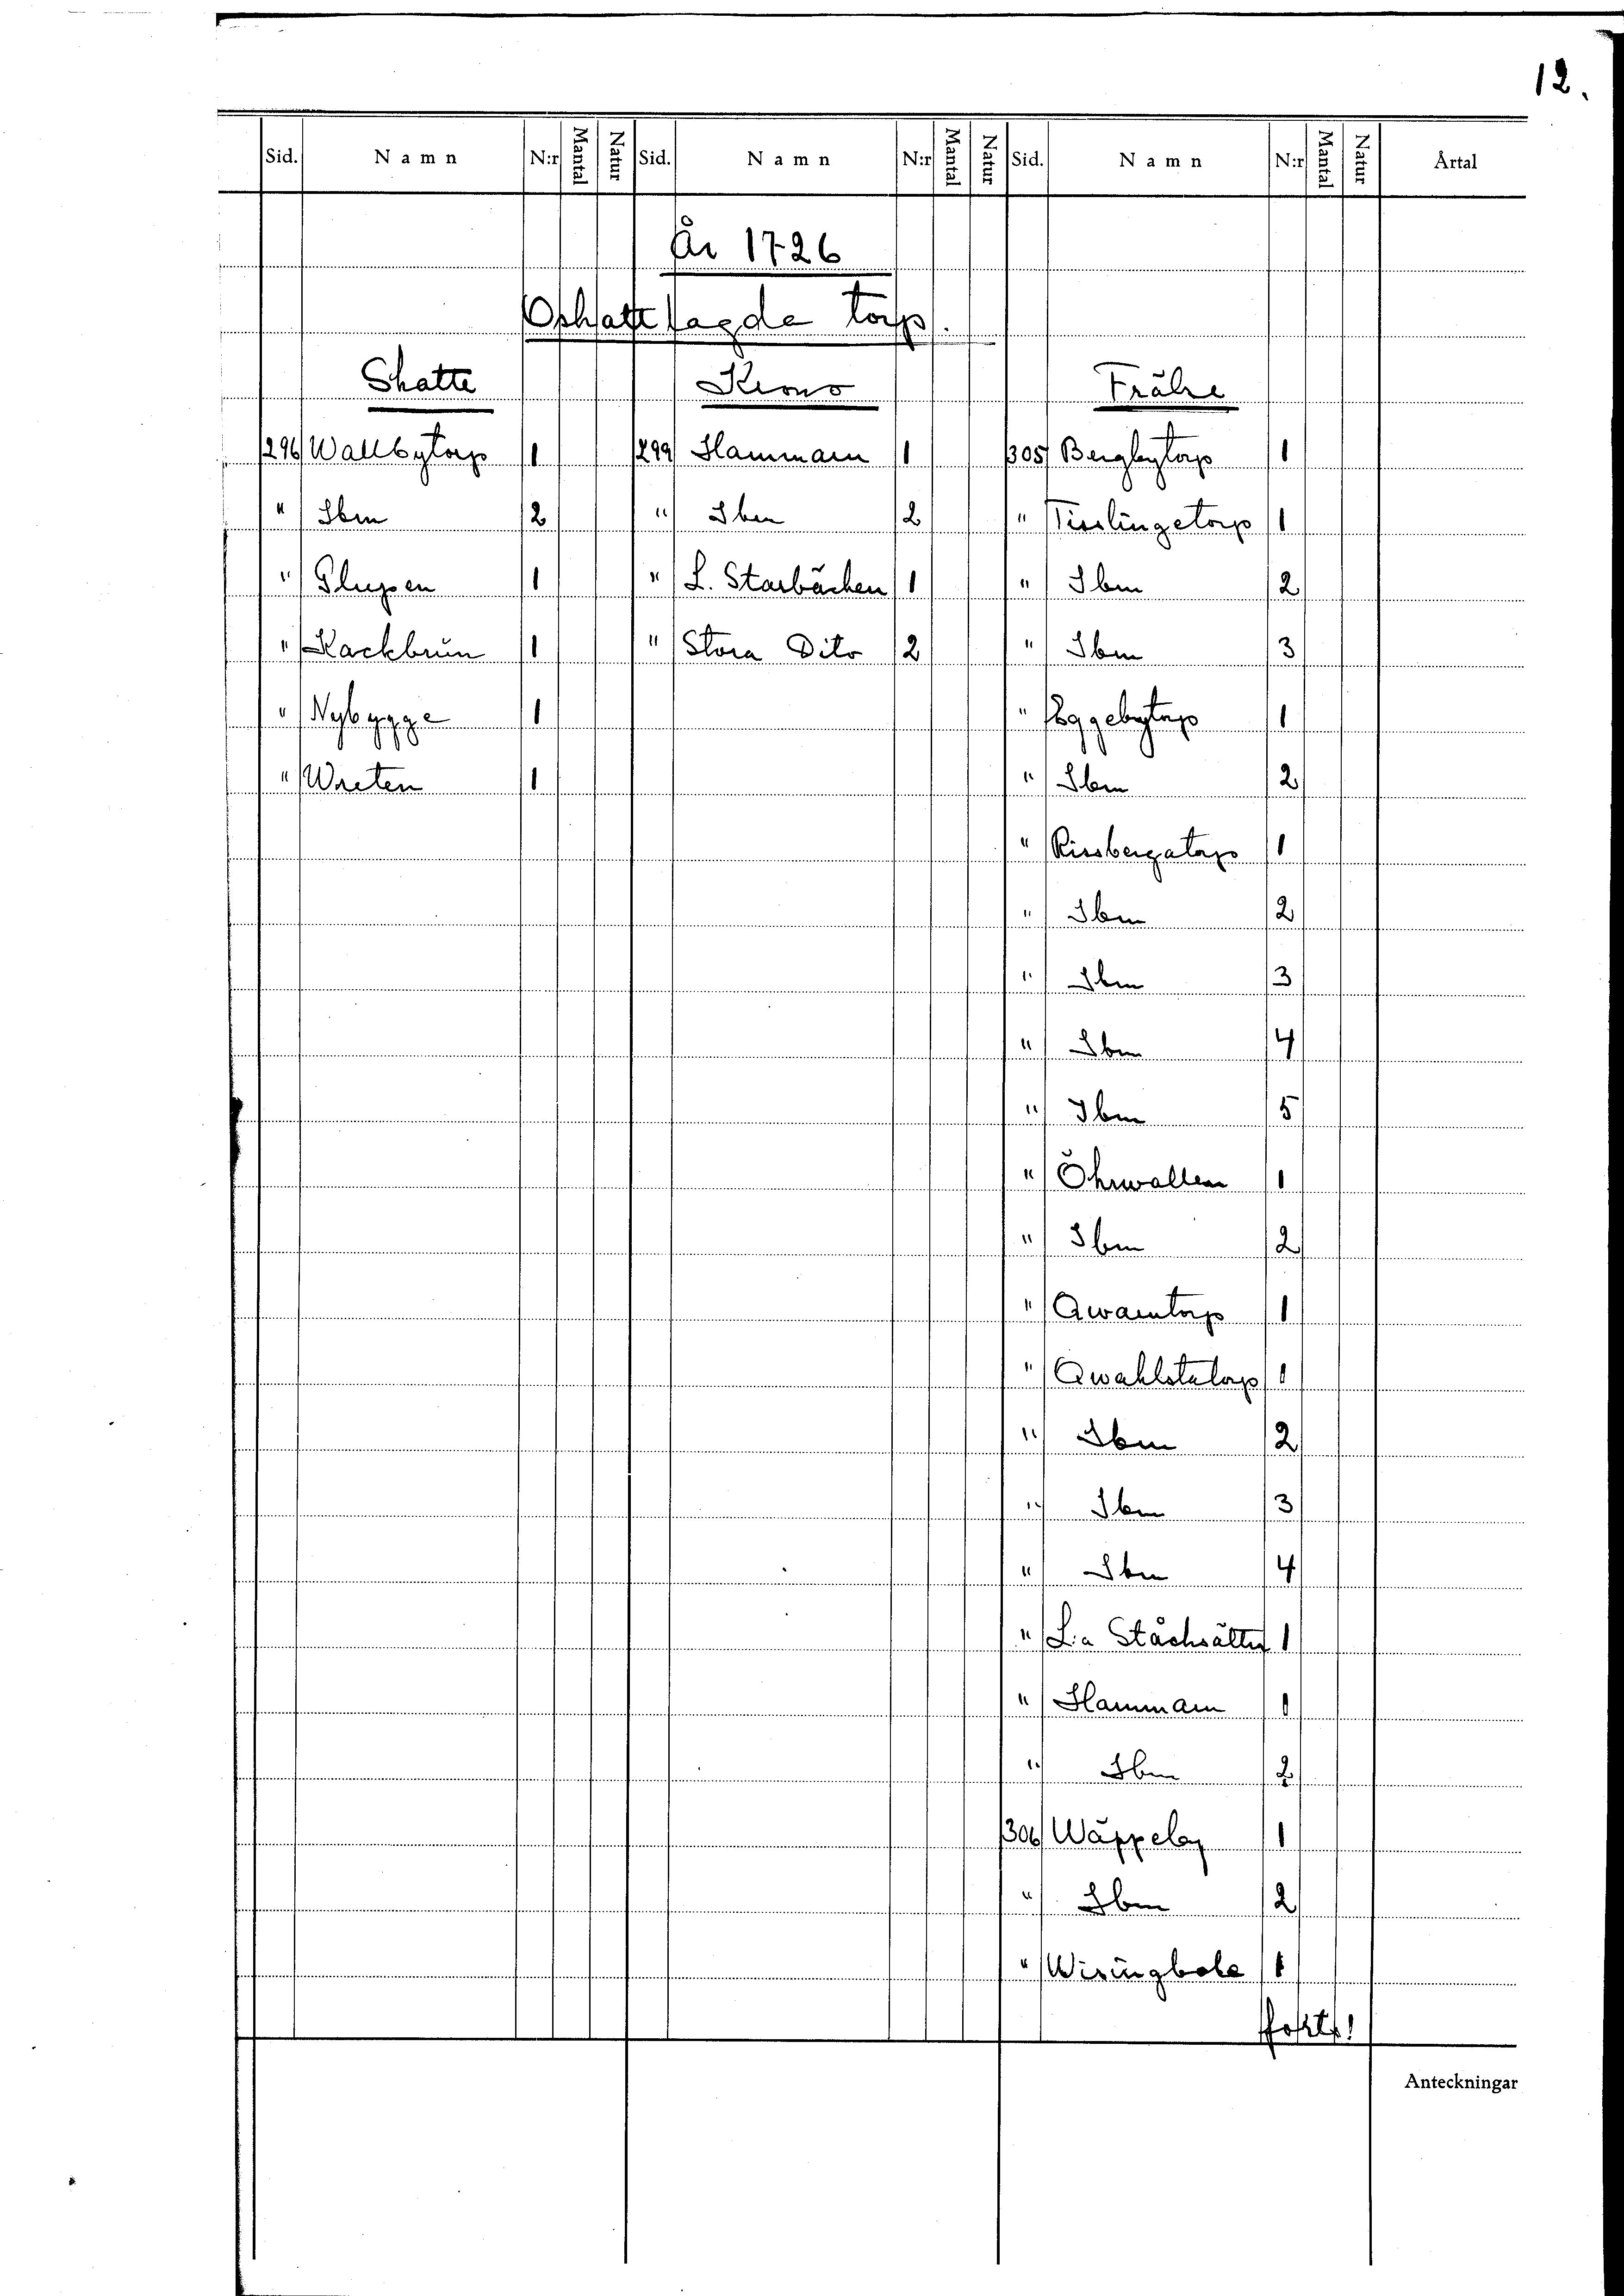 12.
Sid. Namn N:r Mantal Natur Sid. Namn N:r Mantal Natur Sid. Namn N:r Mantal Natur Årtal
År 1726
Oskattlagda torp.
Skatte Krono Frälse
296 Wallbytorp 1 299 Hammarn 1 305 Bergbytorp 1
" Ibm 2 " Ibm 2 " Tisslingetorp 1
" Glupen 1 " L. Starbäcken 1 " Ibm 2
" Kackbrun 1 " Stora Dito 2 " Ibm 3
" Nybygge 1 " Eggebytorp 1
" Wreten 1 " Ibm 2
" Rissbergatorp 1
" Ibm 2
" Ibm 3
" Ibm 4
" Ibm 5
" Öhrwallen 1
" Ibm 2
" Qwarntorp 1
" Qwahlstatorp 1
" Ibm 2
" Ibm 3
" Ibm 4
" L:a Ståcksätter 1
" Hammarn 1
" Ibm 2
306 Wäppeby 1
" Ibm 2
" Wisingboda 1
forts!
Anteckningar